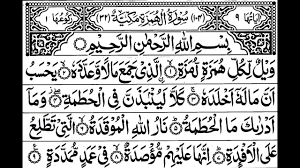 اٰيَاتُهَا ٩ (١٠٤) سُوْرَةُ الْهُمَزَةِ مَكِّيَّةٌ (٣٢) رُكُوْعُهَا ١
بِسْمِ اللّٰهِ الرَّحْمٰنِ الرَّحِيْمِ
وَيْلٌ لِّكُلِّ هُمَزَةٍ لُّمَزَةٍ ۝ الَّذِيْ جَمَعَ مَالًا وَّعَدَّدَهٗ ۝ يَحْسَبُ
اَنَّ مَالَهٗۤ اَخْلَدَهٗ ۝ كَلَّا لَيُنْۢبَذَنَّ فِي الْحُطَمَةِ ۝ وَمَاۤ
اَدْرٰىكَ مَا الْحُطَمَةُ ۝ نَارُ اللّٰهِ الْمُوْقَدَةُ ۝ الَّتِيْ تَطَّلِعُ
عَلَى الْاَفْـِٕدَةِ ۝ اِنَّهَا عَلَيْهِمْ مُّؤْصَدَةٌ ۝ فِيْ عَمَدٍ مُّمَدَّدَةٍ ۝